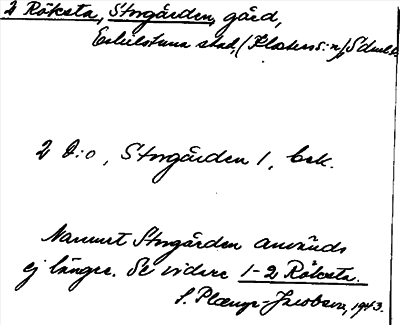 2 Röksta, Storgården, gård,
Eskilstuna stad, (Klosters: n) Södml.
2 D:o, Storgården 1, bek.
Namnet Storgården används
ej längre. Se vidare 1-2 Röksta.
S. Jacobson, 1943.